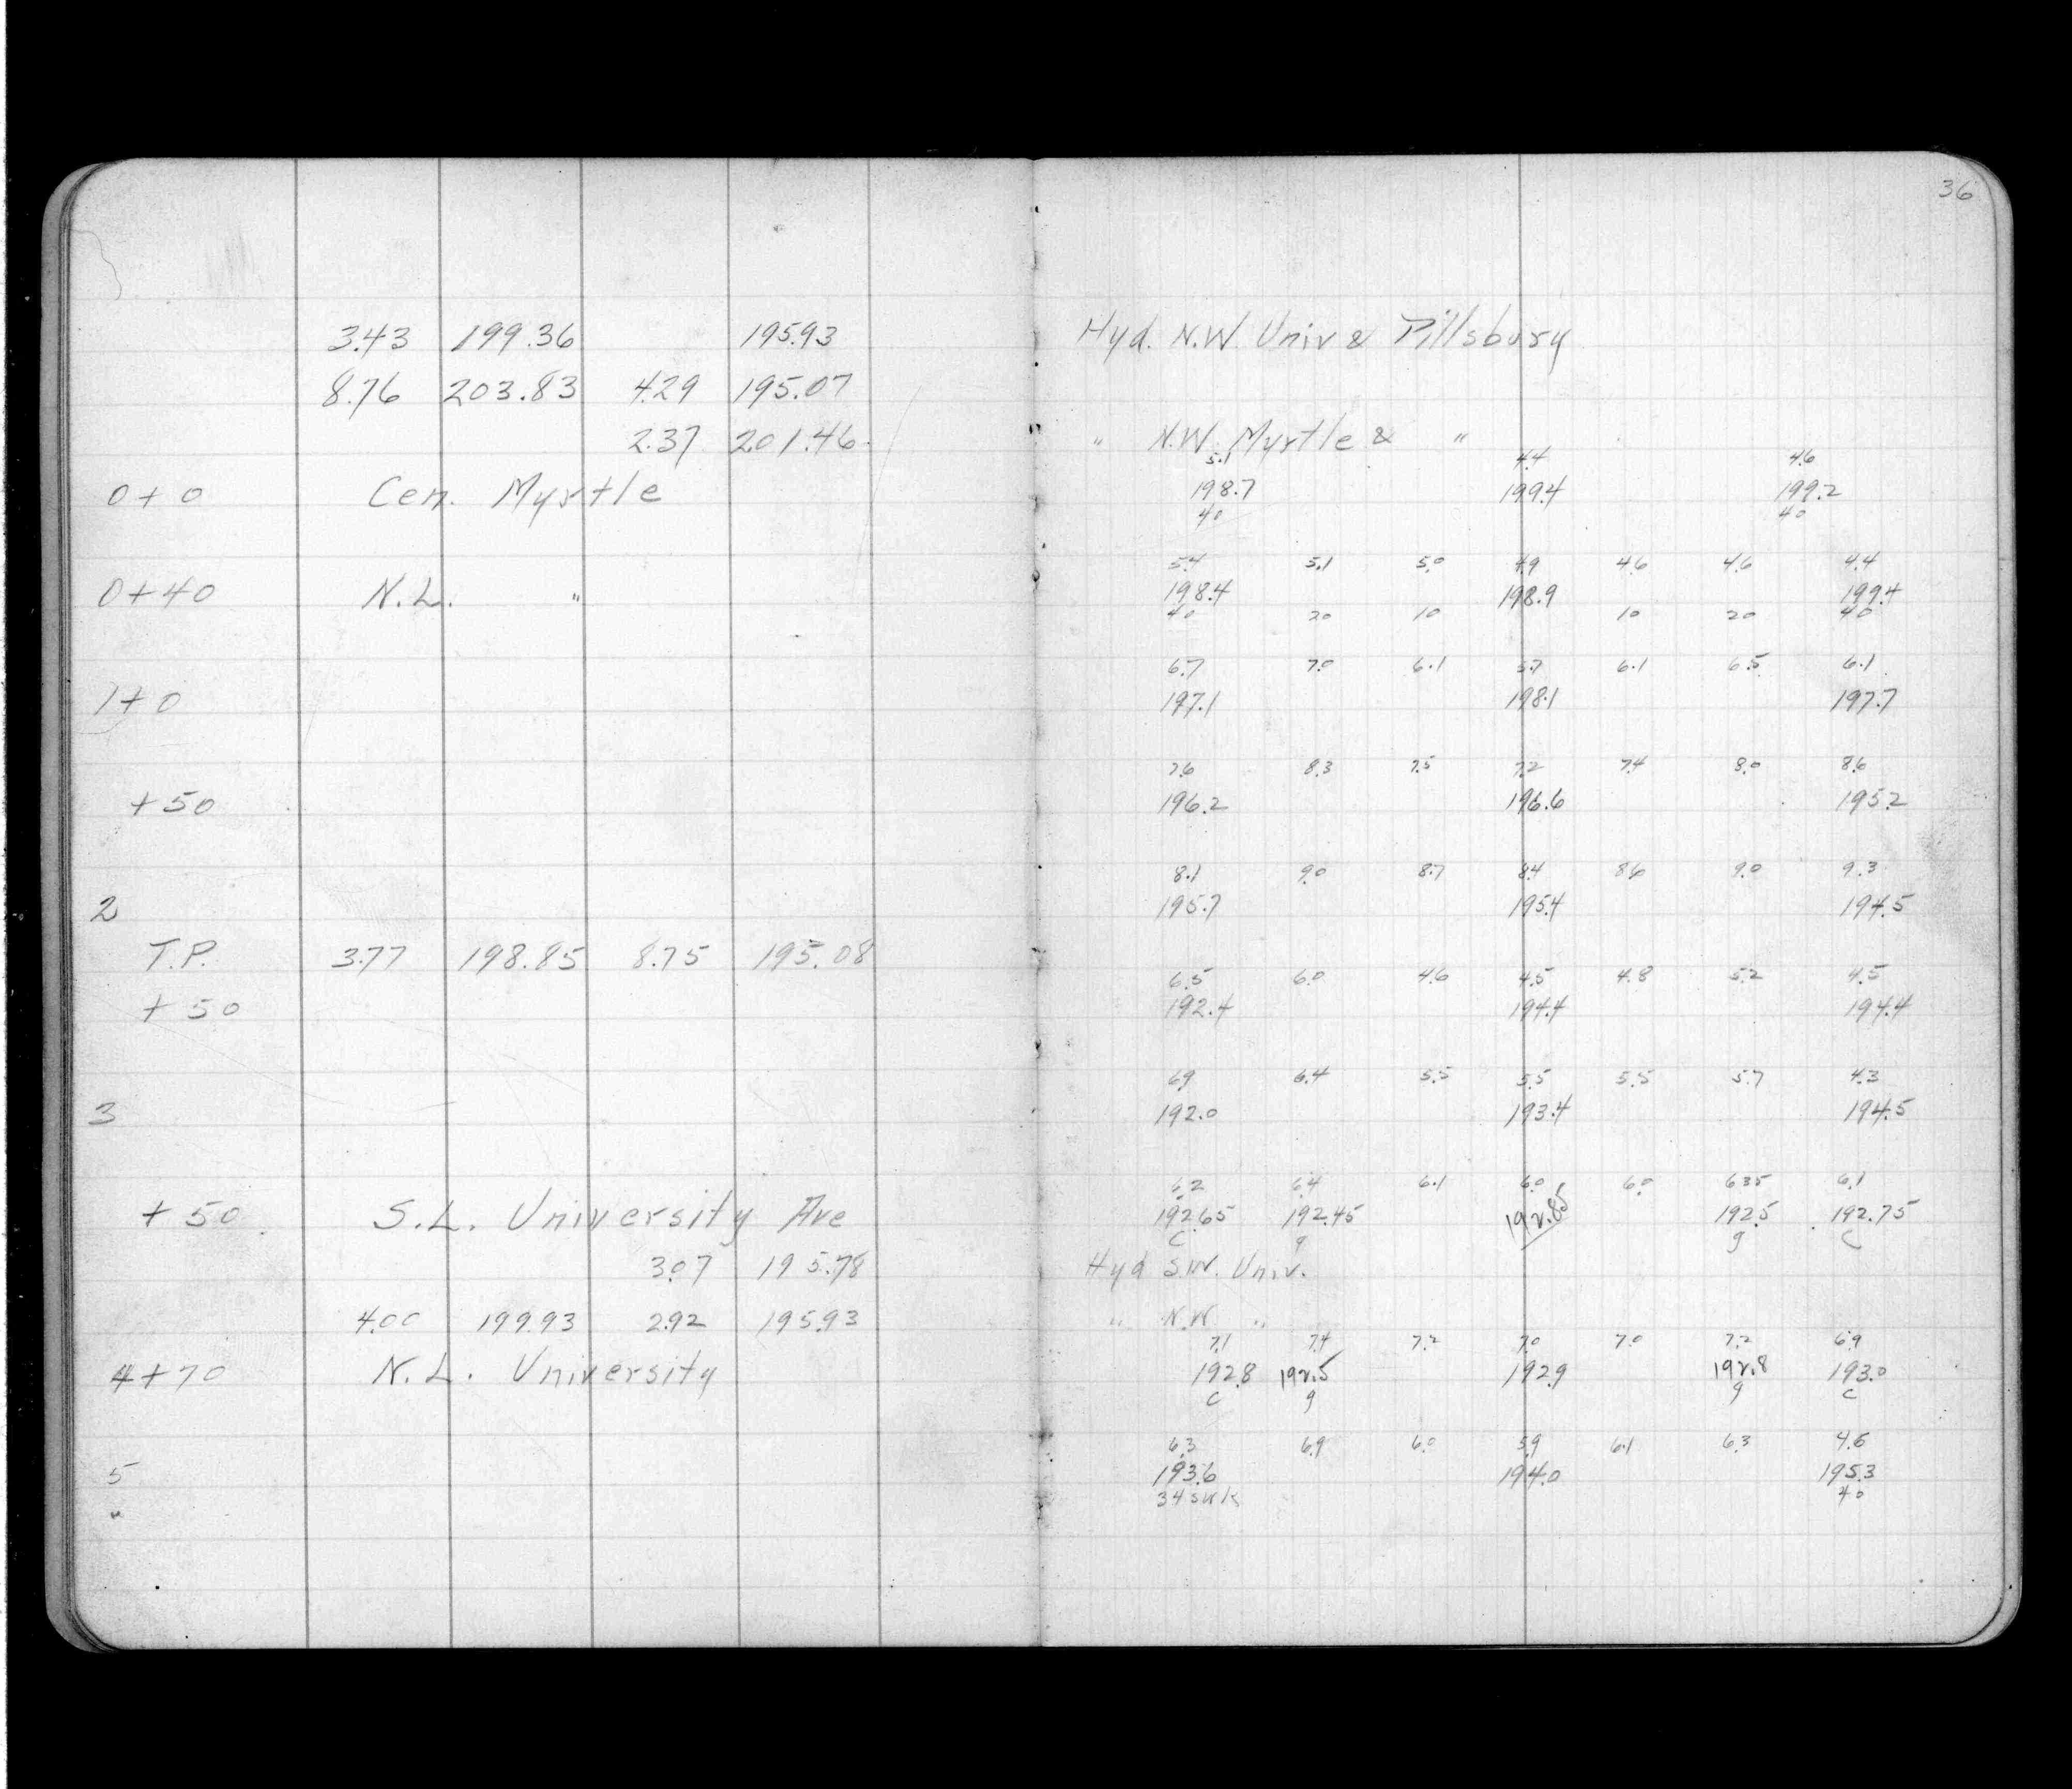 36
3.43 199.36 195.93 Hyd. N.W. Univ & Pillsbury
8.76 203.83 4.29 195.07
2.37 201.46 " N.W. Myrtle & "
5.1 4.4 4.6
0+0 Cen. Myrtle 198.7 199.4 199.2
40 40
5.4 5.1 5.0 4.9 4.6 4.6 4.4
0+40 N.L. " 198.4 198.9 199.4
40 20 10 10 20 40
6.7 7.0 6.1 5.7 6.1 6.5 6.1
1+0 197.1 198.1 197.7
7.6 8.3 7.5 7.2 7.4 8.0 8.6
+50 196.2 196.6 195.2
8.1 9.0 8.7 8.4 8.6 9.0 9.3
2 195.7 195.4 194.5
T.P. 3.77 198.85 8.75 195.08
6.5 6.0 4.6 4.5 4.8 5.2 4.5
+50 192.4 194.4 194.4
6.9 6.4 5.5 5.5 5.5 5.7 4.3
3 192.0 193.4 194.5
6.2 6.4 6.1 6.0 6.0 6.35 6.1
+50 S.L. University Ave 192.65 192.45 192.85 192.5 192.75
C g g C
3.07 195.78 Hyd S.W. Univ.
4.00 199.93 2.92 195.93 " N.W. "
7.1 7.4 7.2 7.0 7.0 7.2 6.9
4+70 N.L. University 192.8 192.5 192.9 192.8 193.0
C g g C
6.3 6.9 6.0 5.9 6.1 6.3 4.6
5 193.6 194.0 195.3
34 swk 40